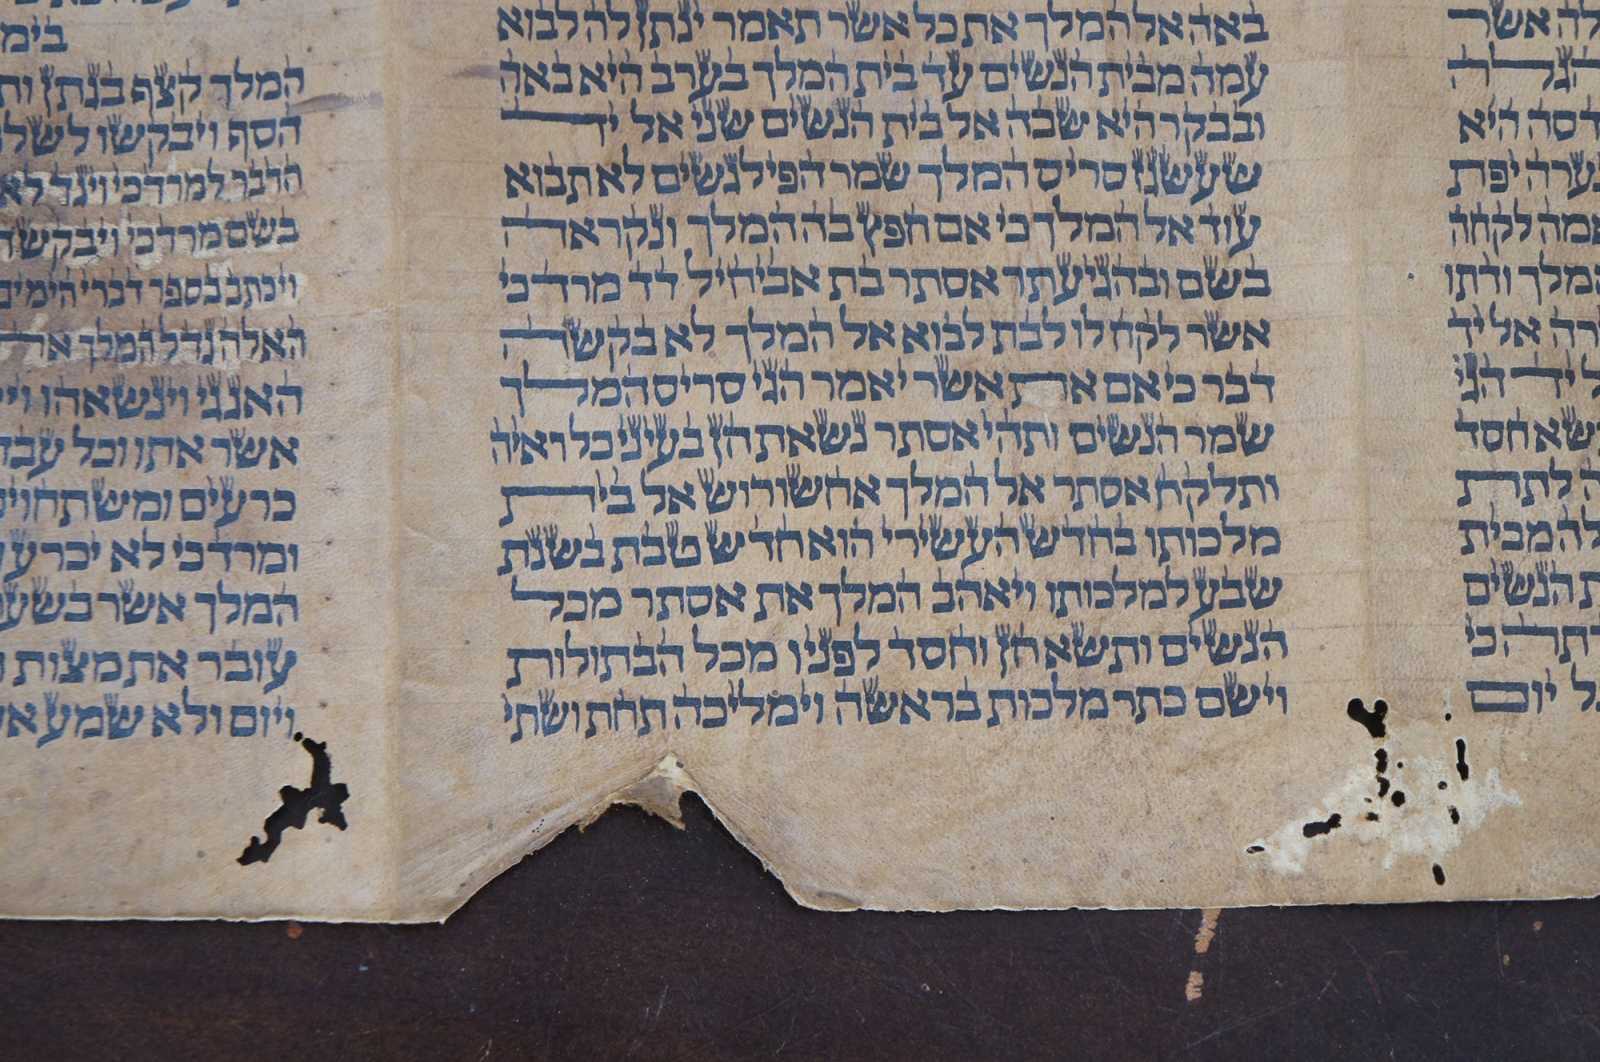 לה אשר
הגלה
דסה היא
נערה יפת
אמה לקחה
המלך ודתו
ירה אל יד
ל יד הגי
תשא חסד
ה לתת
לה מבית
ת הנשים
דתה כי
ל יום
באה אל המלך את כל אשר תאמר ינתן לה לבוא
עמה מבית הנשים עד בית המלך בערב היא באה
ובבקר היא שבה אל בית הנשים שני אל יד
שעשגז סריס המלך שמר הפילגשים לא תבוא
עוד אל המלך כי אם חפץ בה המלך ונקראה
בשם ובהגיע תר אסתר בת אביחיל דד מרדכי
אשר לקח לו לבת לבוא אל המלך לא בקשה
דבר כי אם את אשר יאמר הגי סריס המלך
שמר הנשים ותהי אסתר נשאת חן בעיני כל ראיה
ותלקח אסתר אל המלך אחשורוש אל בית
מלכותו בחדש העשירי הוא חדש טבת בשנת
שבע למלכותו ויאהב המלך את אסתר מכל
הנשים ותשא חן וחסד לפניו מכל הבתולות
וישם כתר מלכות בראשה וימליכה תחת ושתי
בימ
המלך קצף בגתן ות
הסף ויבקשו לשל
הדבר למרדכי ויגד לא
בשם מרדכי ויבקש ה
ויכתב בספר דברי הימים
האלה גדל המלך א
האגגי וינשאהו וי
אשר אתו וכל עבד
כרעים ומשתחוים
ומרדכי לא יכרע ו
המלך אשר בשע
עובר את מצות ה
ויום ולא שמע א